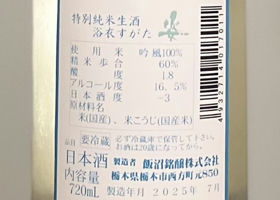 特別純米生酒
浴衣すがた
使用米 吟風100%
精米歩合 60%
酸度 1.8
アルコール度 16.5%
日本酒度 -3
原材料名
米(国産)、米こうじ(国産米)
要冷蔵 必ず冷蔵庫で保管して下さい。
お酒は20歳になってから。
品目
日本酒 製造者 飯沼銘醸株式会社
内容量 栃木県栃木市西方町元850
720mL 製造年月 2025年 7月
4932714017011